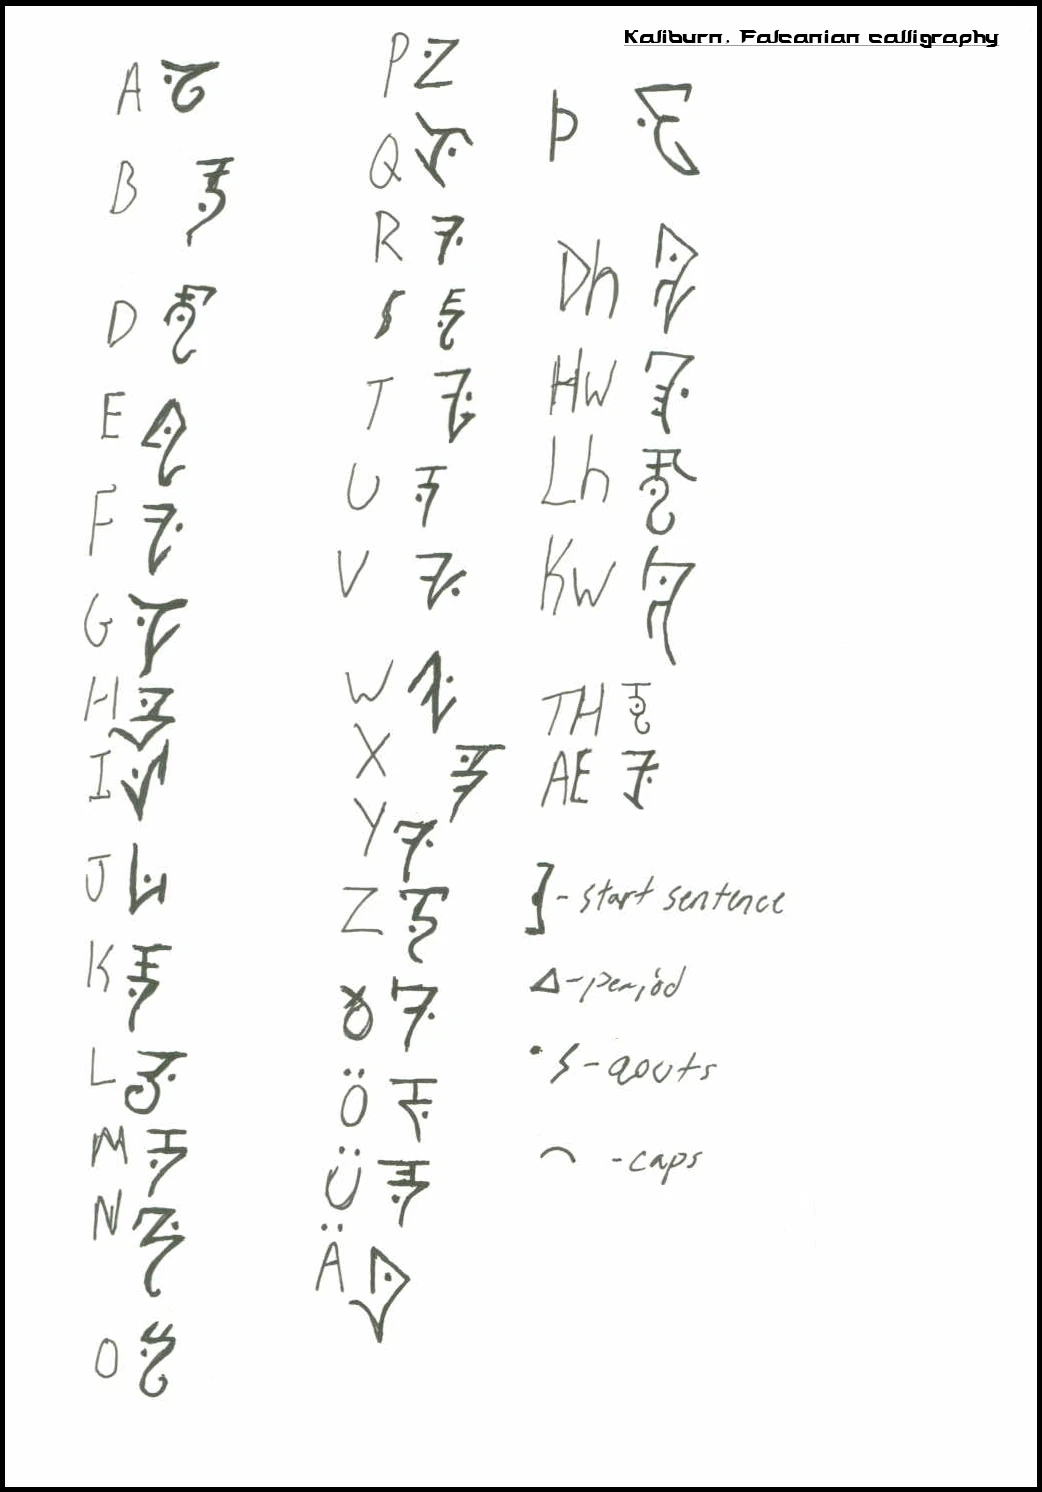 Kaliburn. Falcanian calligraphy
A
B
D
E
F
G
H
I
J
K
L
M
N
O
P
Q
R
S
T
U
V
W
X
Y
Z
Ȣ
Ö
Ü
Ä
Þ
Dh
Hw
Lh
Kw
TH
AE
-start sentence
-period
-qouts
-caps